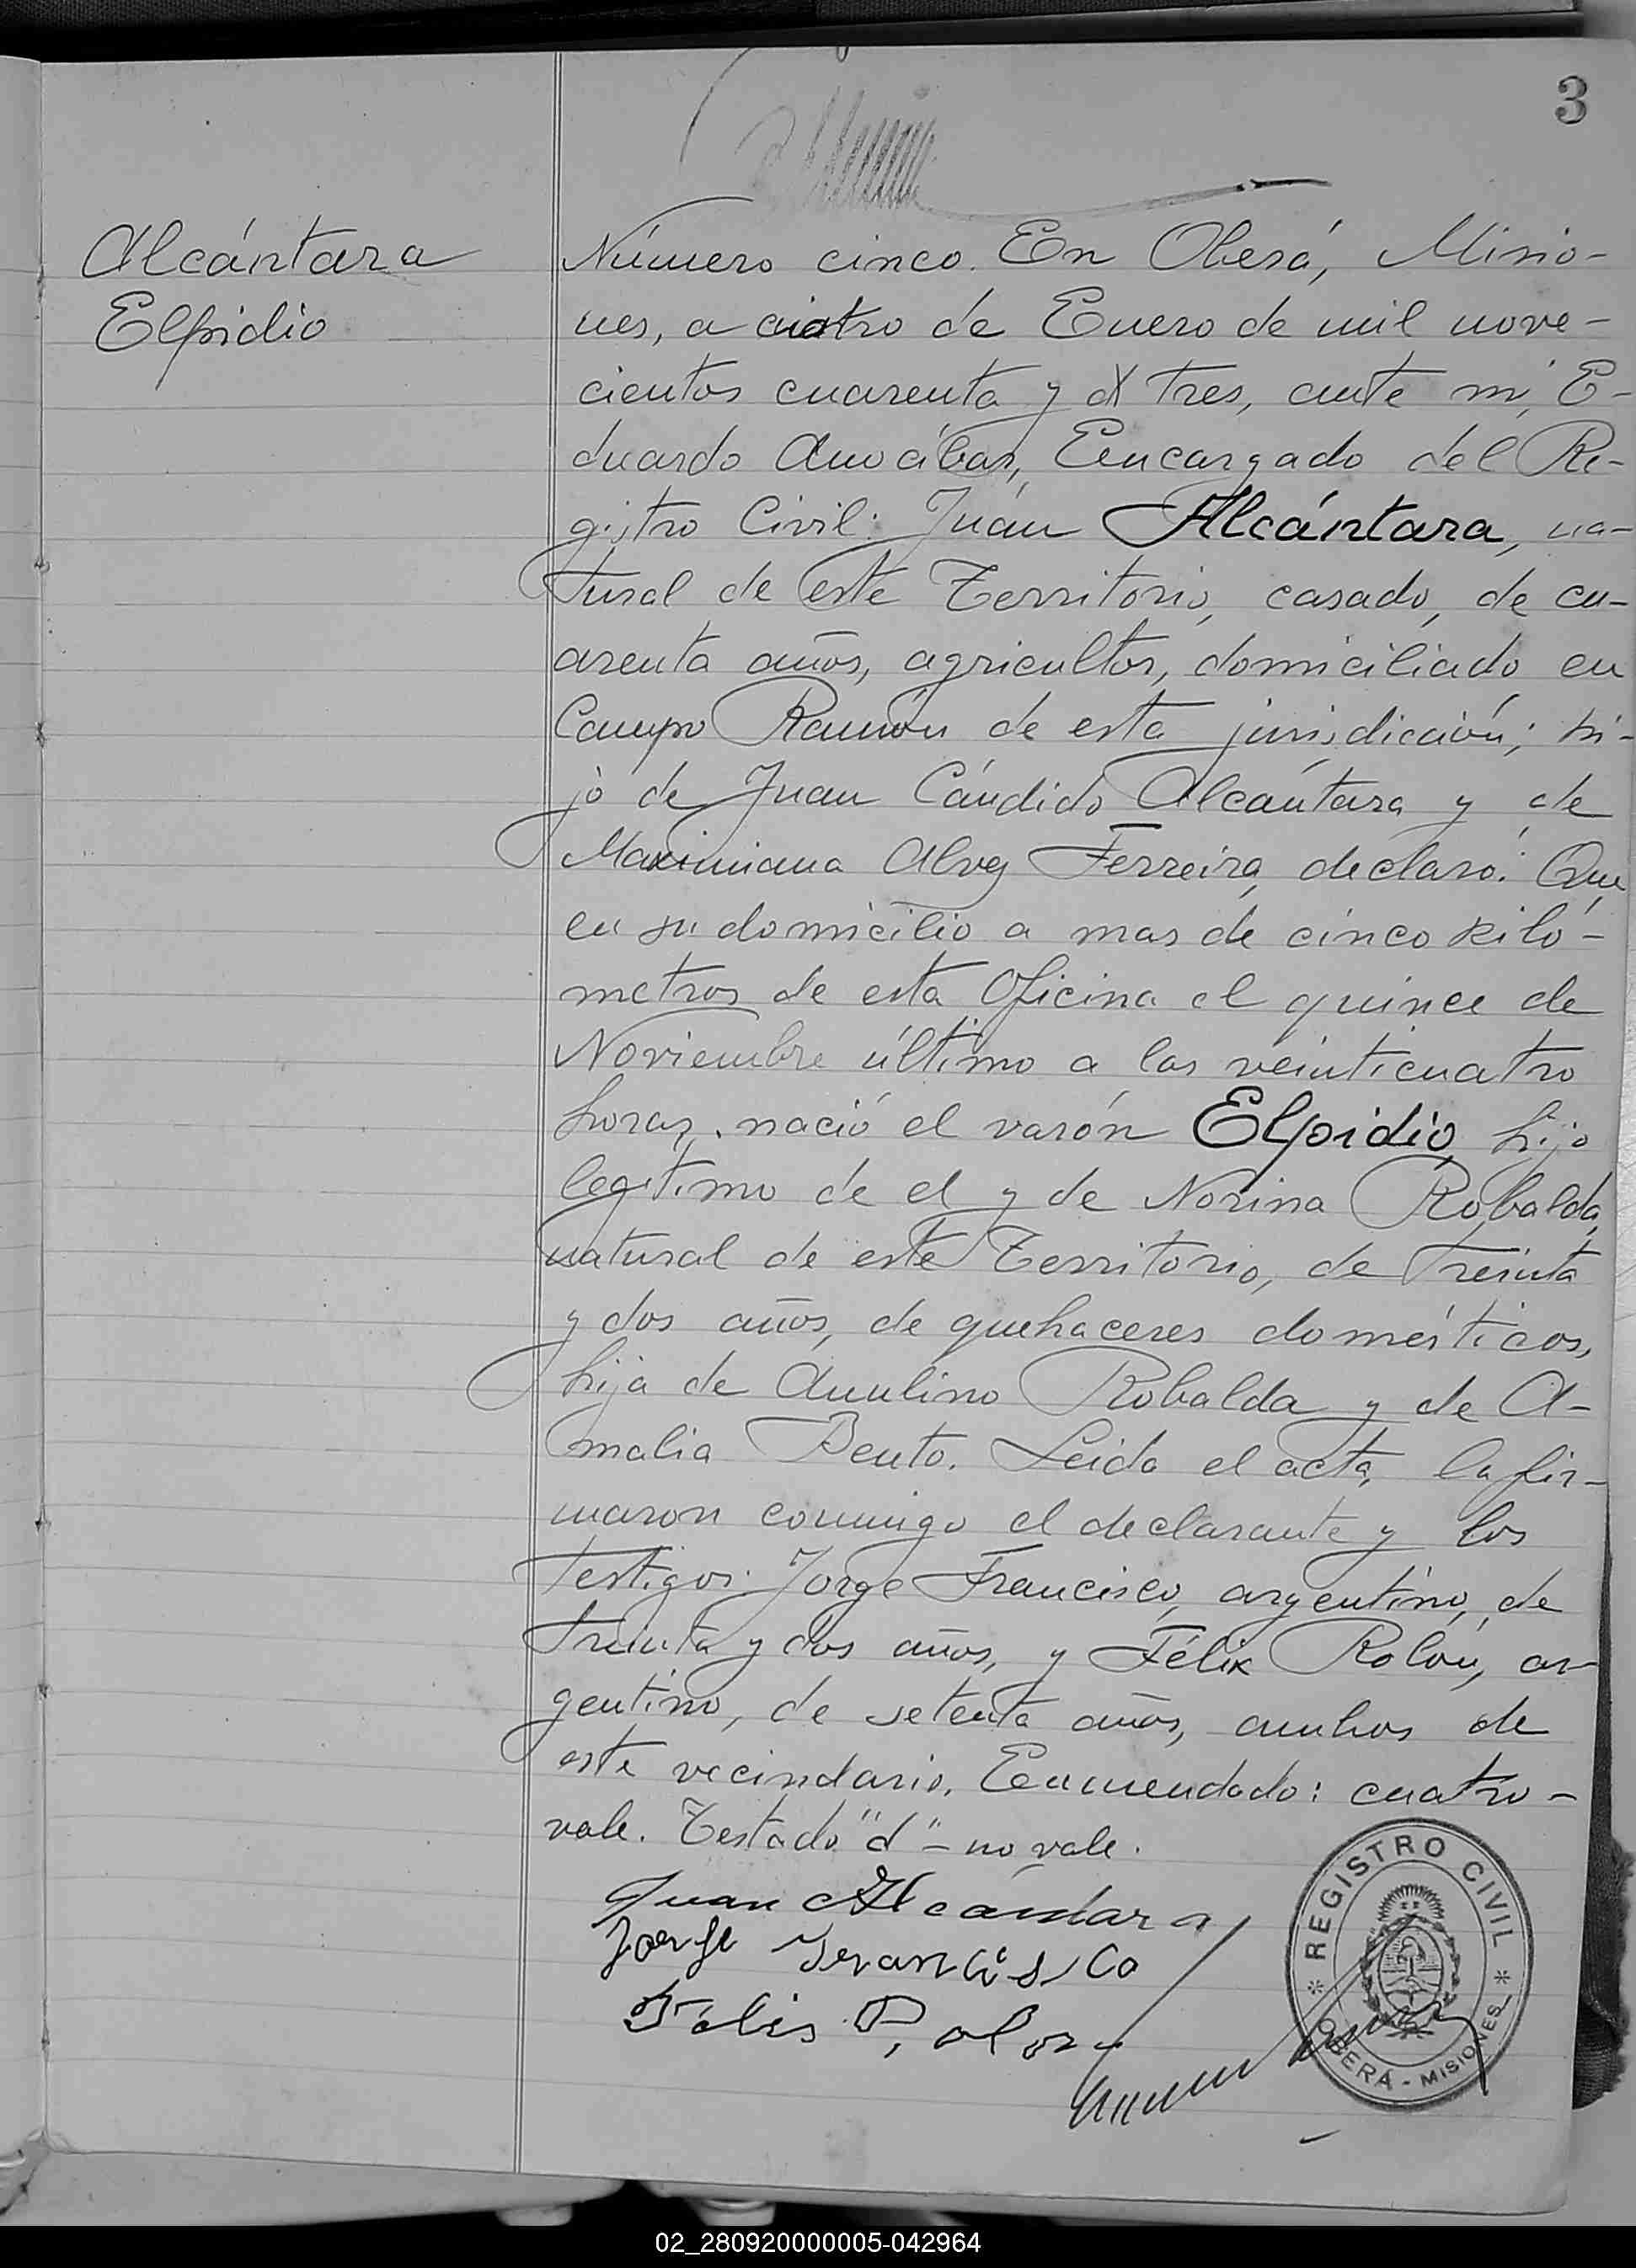 3
Alcántara
Elpidio
Número cinco. En Oberá, Misio-
nes, a cuatro de Enero de mil nove-
cientos cuarenta y d tres, ante mi, E-
duardo Ancibar, Encargado del Re-
gistro Civil: Juán Alcántara, na-
tural de este Territorio, casado, de cu-
arenta años, agricultor, domiciliado en
Campo Ramón de esta jurisdicción; hi-
jo de Juan Cándido Alcántara y de
Maximiana Alves Ferreira, declaró: Que
en su domicilio a mas de cinco kiló-
metros de esta Oficina el quince de
Noviembre último a las veinticuatro
horas, nació el varón Elpidio, hijo
legítimo de el y de Norina Robalda,
natural de este Territorio, de treinta
y dos años, de quehaceres domésticos,
hija de Anulino Robalda y de A-
malia Bento. Leida el acta, la fir-
maron conmigo el declarante y los
testigos: Jorge Francisco, argentino, de
treinta y dos años, y Félix Rolón, ar-
gentino, de setenta años, ambos de
este vecindario. Enmendado: cuatro -
vale. Testado "d" - no vale.
Juan Alcandara
Jorge Francisco
Felis Rolon
REGISTRO CIVIL
OBERÁ - MISIONES
02_280920000005-042964